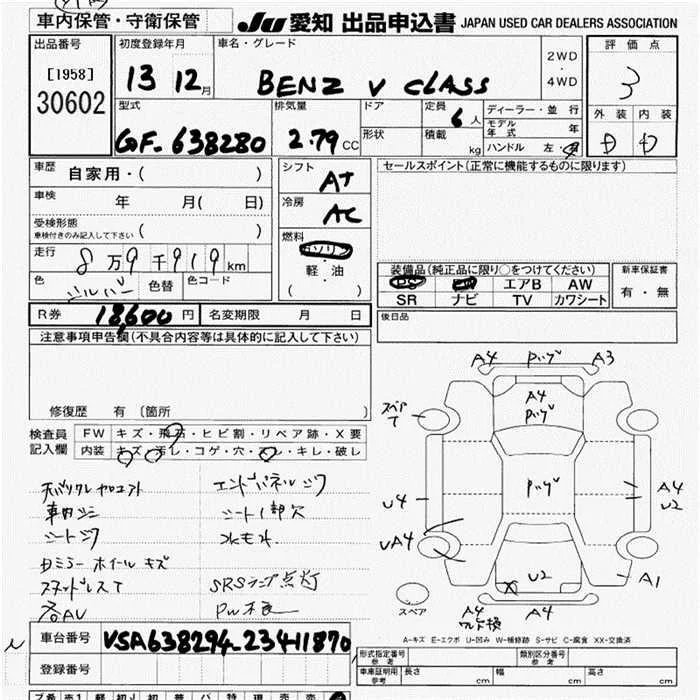 車内保管・守衛保管
JU 愛知 出品申込書 JAPAN USED CAR DEALERS ASSOCIATION
出品番号 初度登録年月 車名・グレード 2WD ・ 4WD 評価点
[1958]
30602
13 12月 BENZ V CLASS 3
型式 排気量 ドア 定員 6人 ディーラー・並行 外装 内装
GF-638280 2.79 CC 形状 積載 kg モデル年式 年
ハンドル 左・
車歴 自家用・( )
シフト AT
セールスポイント(正常に機能するものに限ります)
車検 年 月( 日)
冷房 AC
受検形態 ( )
車検付きのみ記入して下さい
燃料 ガソリン
軽・油
( )
走行 8万9千919km
装備品(純正品に限り○をつけてください) 新車保証書
PS PW エアB AW 有・無
SR ナビ TV カワシート
色 シルバー 色替 色コード
R券 18,600円 名変期限 月 日
後日品
注意事項申告欄(不具合内容等は具体的に記入して下さい)
修復歴 有 〔箇所 〕
検査員記入欄 FW キズ・飛石・ヒビ割・リペア跡・X要
内装 キズ・汚レ・コゲ・穴・スレ・キレ・破レ
エンドパネルシワ
車内シミ シート1部欠
シートシワ 水もれ
Dミラー ホイール キズ
スタッドレスT SRSランプ点灯
PW不良
A4 A3
スペアT
A4
U4 A4
U2
UA4
U2 A1
スペア A4 A4
A-キズ E-エクボ U-凹み W-補修跡 S-サビ C-腐食 XX-交換済
車台番号 VSA638294-23411870
形式指定番号 参考 類別区分番号 参考
登録番号
車庫証明用 参考 長さ cm 幅 cm 高さ cm